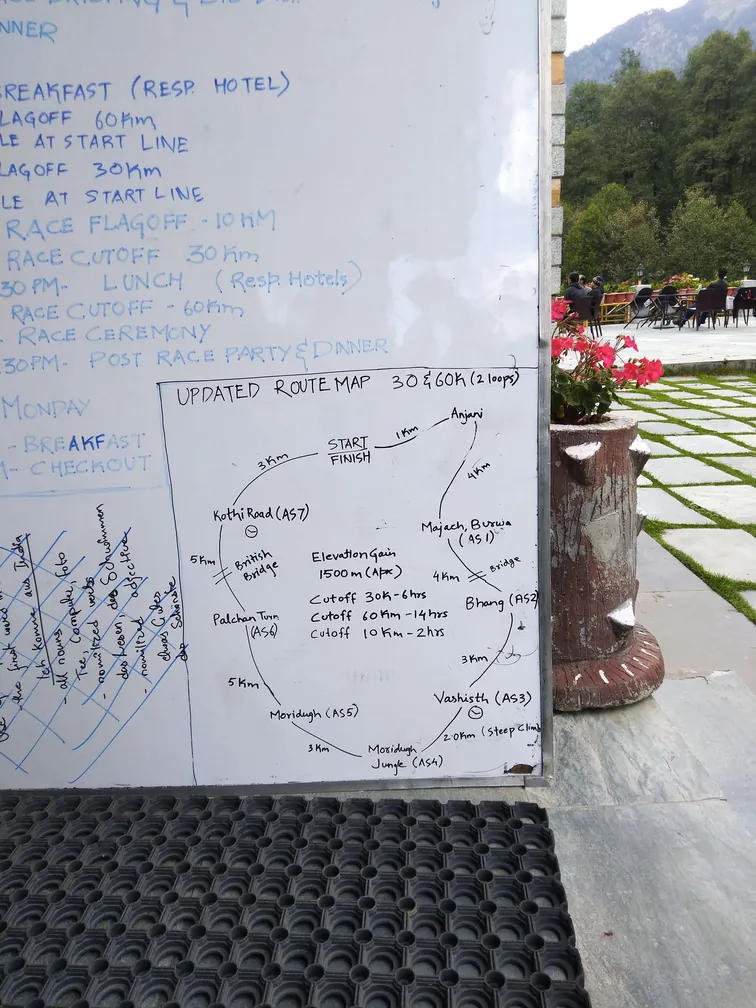 NNER
BREAKFAST (RESP. HOTEL)
FLAGOFF 60Km
LE AT START LINE
FLAGOFF 30Km
LE AT START LINE
RACE FLAGOFF - 10KM
RACE CUTOFF 30Km
30PM- LUNCH (Resp. Hotels)
RACE CUTOFF - 60Km
RACE CEREMONY
:30PM- POST RACE PARTY & DINNER
MONDAY
- BREAKFAST
M- CHECKOUT
UPDATED ROUTE MAP 30 & 60K (2 loops)
START
FINISH
1Km
Anjani
4Km
Majach, Burwa
(AS1)
4Km
Bridge
Bhang (AS2)
3Km
Vashisth (AS3)
2.0Km (Steep Climb
Moridugh
Jungle (AS4)
3Km
Moridugh (AS5)
5Km
Palchan Turn
(AS6)
5Km
British
Bridge
Kothi Road (AS7)
3Km
Elevation Gain
1500m (Apx)
Cutoff 30K-6hrs
Cutoff 60Km-14hrs
Cutoff 10Km-2hrs
Ich komme aus India
- all nouns
Computer, Foto
Tee,
- nomilized verbs
das Lesen, das Schwimmen
- nomilized adjective
das Schönste